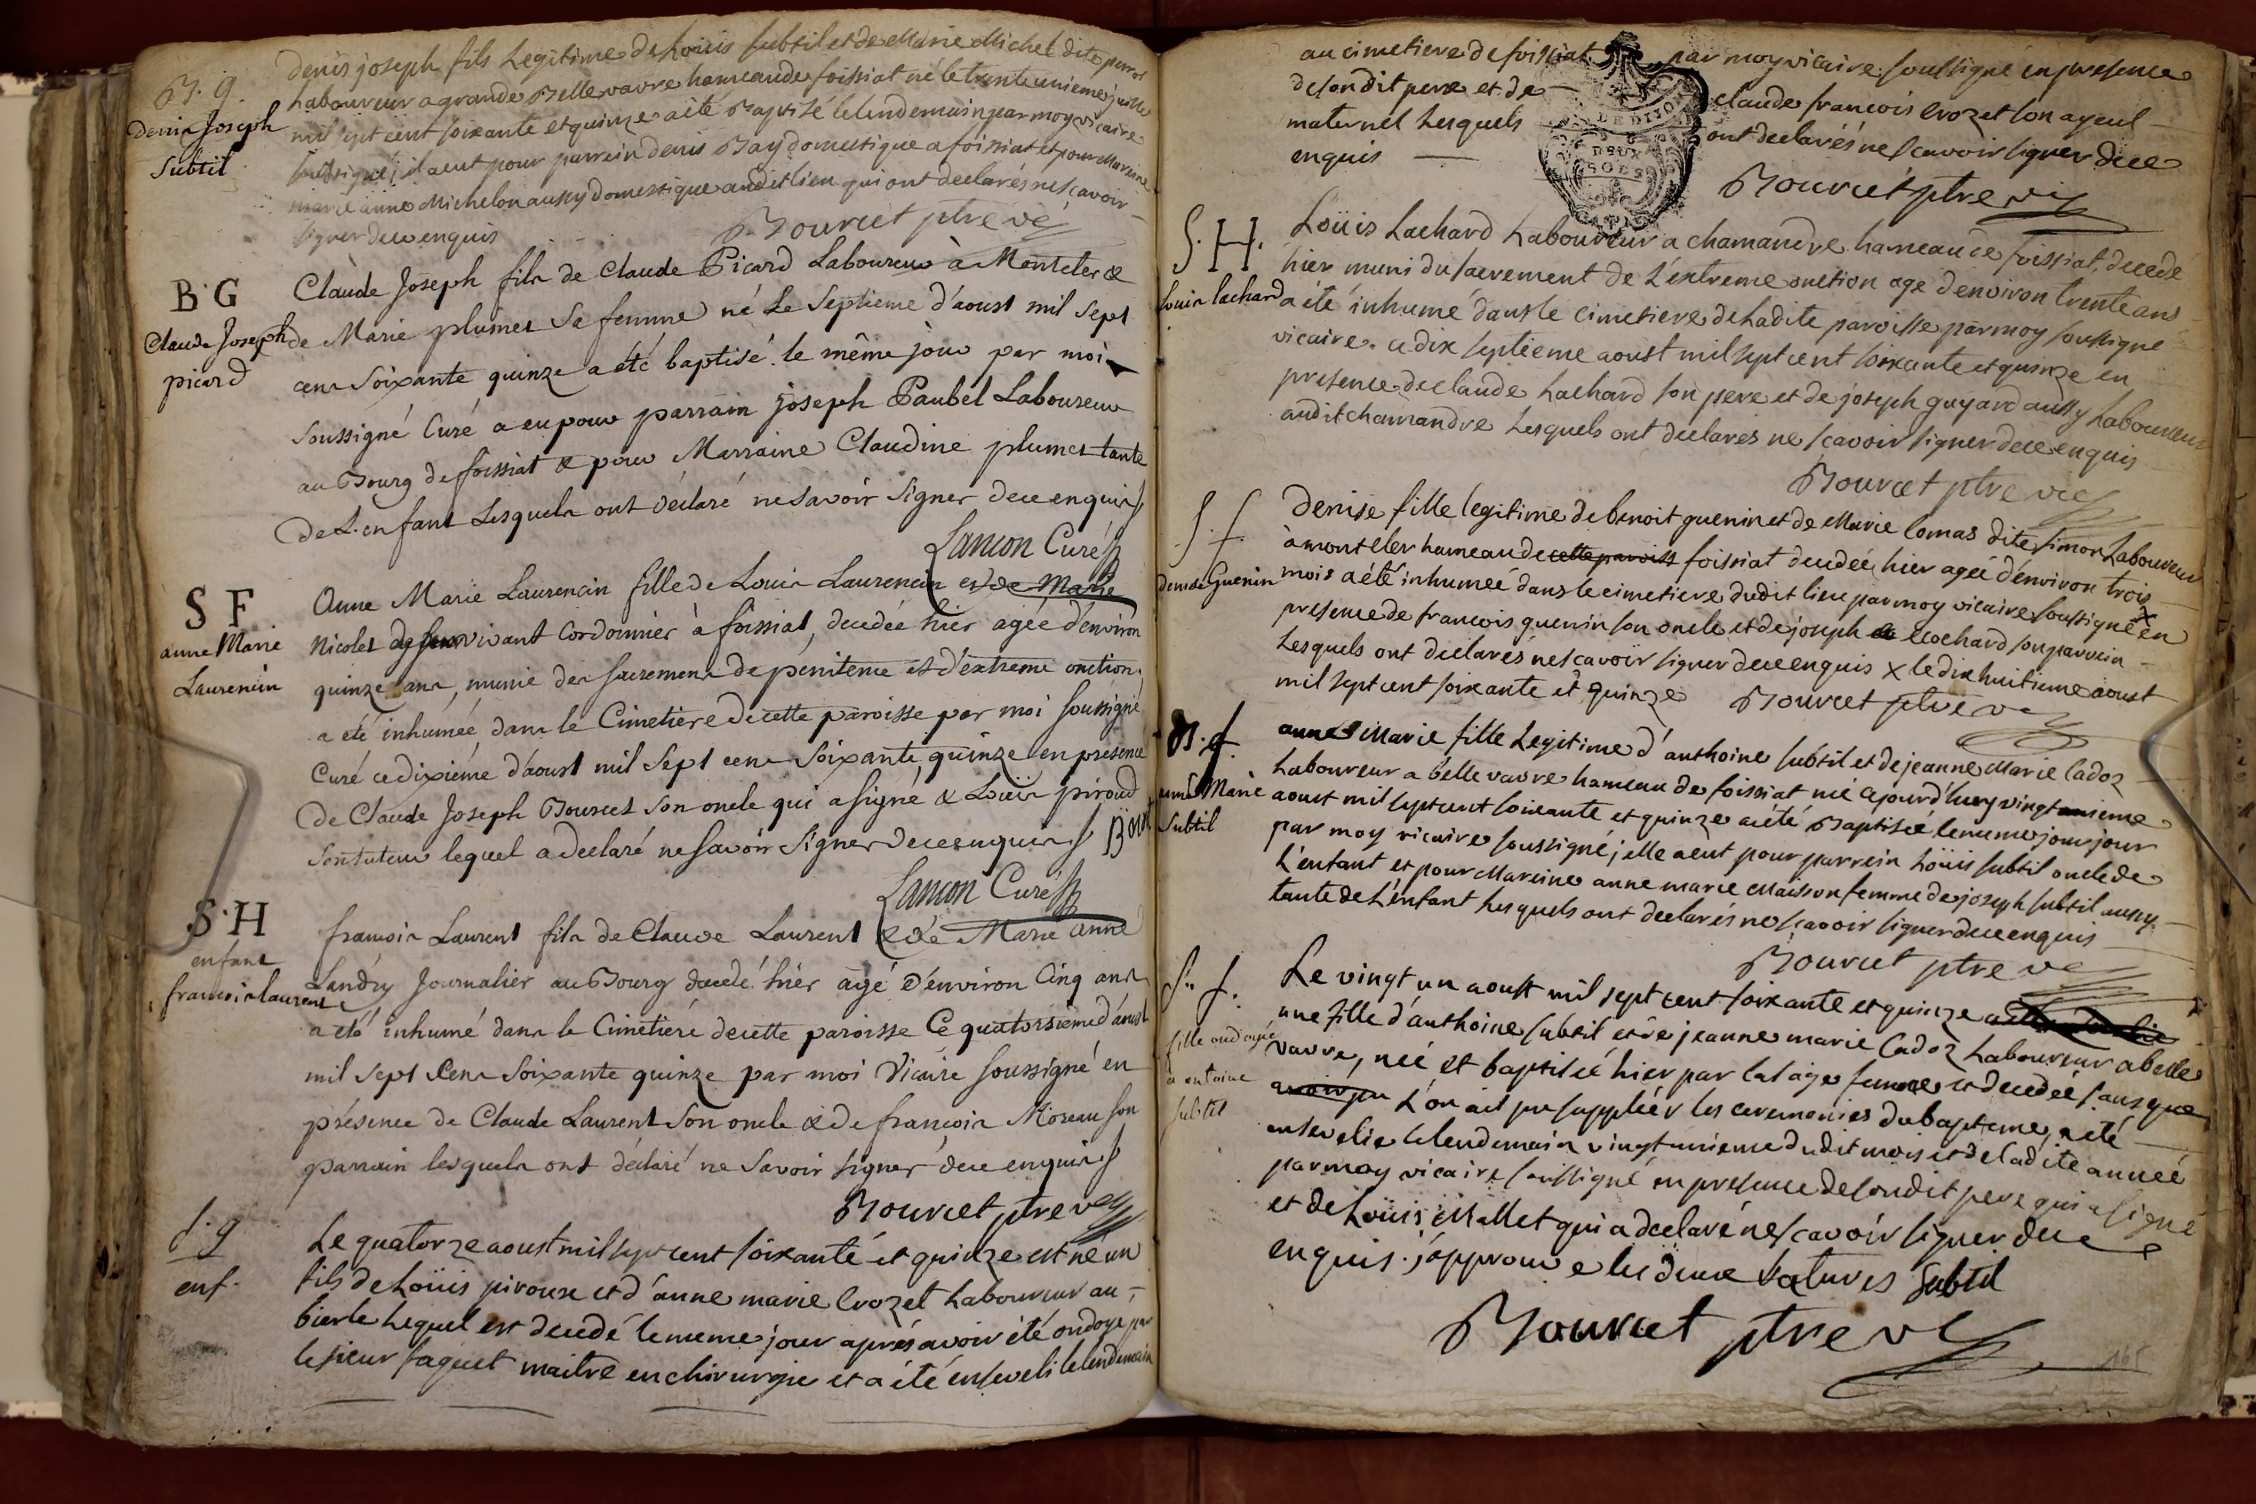 B. g.
denis Joseph
Subtil
denis joseph fils Legitime de Loüis subtil et de Marie Michel dite perrot
Laboureur a grande Bellevavre hameau de foissiat né le trente unieme juillet
mil sept cent soixante et quinze a été Baptisé le lendemain par moy vicaire
soussigné; il a eut pour parrein denis Bay domestique a foissiat et pour Mareine
marie anne Michelon aussy domestique audit lieu qui ont declarés ne scavoir
signer de ce enquis
Bourcet ptre vic
B. G
Claude Joseph
picard
Claude Joseph fils de Claude Picard Laboureur à Montcler &
de Marie plumet Sa femme né Le Septieme d'aoust mil Sept
cent Soixante quinze a été baptisé le même jour par moi
Soussigné Curé a eu pour parrain joseph Paubel Laboureur
au Bourg de foissiat & pour Marraine Claudine plumet tante
de L'enfant Lesquels ont déclaré ne Savoir Signer de ce enquis
Lancon Curé
S F
anne Marie
Laurencin
Anne Marie Laurencin fille de Louis Laurencin et de Marie
Nicolet de vivant Cordonnier à foissiat, decedée hier agée d'environ
quinze ans, munie des sacremens de pénitence et d'extreme onction,
a été inhumée dans le Cimetiere de cette paroisse par moi soussigné
Curé ce dixiéme d'aoust mil Sept cent Soixante quinze en présence
de Claude Joseph Bourcet Son oncle qui a signé & Loüis piroud
Son tuteur lequel a declaré ne savoir Signer de ce enquis
Lancon Curé
S. H
enfant
francois laurent
francois Laurent fils de Claude Laurent & de Marie Anne
Landry Journalier au Bourg decedé hier agé d'environ Cinq ans
a été inhumé dans le Cimetiere de cette paroisse Ce quatorsieme d'aoust
mil Sept Cent Soixante quinze par moi Vicaire soussigné en
présence de Claude Laurent Son oncle & de francois Moreau son
parrain lesquels ont déclaré ne Savoir signer de ce enquis
Bourcet ptre vic
S. g
enf.
Le quatorze aoust mil sept cent soixante et quinze est né un
fils de Loüis piroux et d'anne marie Crozet Laboureur au
bierle Lequel est decedé le meme jour après avoir été ondoyé par
le sieur faquet maitre en chirurgie et a été enseveli le lendemain
au cimetiere de foissiat par moy vicaire soussigné en presence
de son dit pere et de claude francois Crozet son ayeul
maternel Lesquels ont declarés ne scavoir signer de ce
enquis
DEUX
SOLS
Bourcet ptre vic
S. H.
Louis lachard
Loüis Lachard Laboureur a chamandre hameau de foissiat, decedé
hier muni du sacrement de L'extreme onction agé d'environ trente ans
a été inhumé dans le cimetiere de Ladite paroisse par moy soussigné
vicaire. ce dix septieme aoust mil sept cent soixante et quinze en
presence de claude Lachard son pere et de joseph guyard aussy Laboureur
audit chamandre Lesquels ont declarés ne scavoir signer de ce enquis
Bourcet ptre vic
S. f.
denise Guenin
denise fille legitime de benoit guenin et de Marie Comas dite simon Laboureur
à montcler hameau de cette paroiss foissiat decedée hier agée d'environ trois
mois a été inhumée dans le cimetiere dudit lieu par moy vicaire soussigné x en
presence de francois guenin son oncle et de joseph cochard son parrein
Lesquels ont declarés ne scavoir signer de ce enquis x le dix huitieme aoust
mil sept cent soixante et quinze Bourcet ptre vic
B. f.
anne Marie
Subtil
anne Marie fille Legitime d'anthoine subtil et de jeanne Marie Cadoz
Laboureur a bellevavre hameau de foissiat née cejourd'huy vingt unieme
aoust mil sept cent soixante et quinze a été Baptisée le meme jour jour
par moy vicaire soussigné; elle a eut pour parrein Loüis subtil oncle de
L'enfant et pour Mareine anne marie Maisson femme de joseph subtil aussy
tante de L'enfant Lesquels ont declarés ne scavoir signer de ce enquis
Bourcet ptre vic
S. f.
fille ondoyée
a antoine
subtil
Le vingt un aoust mil sept cent soixante et quinze
une fille d'anthoine subtil et de jeanne marie Cadoz Laboureur a belle
vavre, née et baptisée hier par la sage femme et decedée sans que
avoir pu L'on ait pu suppléer les ceremonies du bapteme, a été
ensevelie le lendemain vingt unieme dudit mois et de ladite année
par moy vicaire soussigné en presence de sondit pere qui a signé
et de Loüis Mallet qui a declaré ne scavoir signer de ce
enquis. j'approuve les deux ratures Subtil
Bourcet ptre vic
165